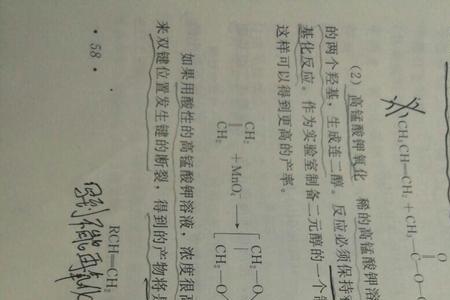 CH₃CH=CH₂ + CH₃—C—O
O
(2) 高锰酸钾氧化 稀的高锰酸钾溶
的两个羟基,生成连二醇。反应必须保持
基化反应。作为实验室制备二元醇的一个
这样可以得到更高的产率。
CH₂ CH₂—O
‖ + MnO₄⁻ → [ |
CH₂ CH₂—O
如果用酸性的高锰酸钾溶液,浓度很
来双键位置发生键的断裂,得到的产物将
RCH=CH₂
· 58 ·